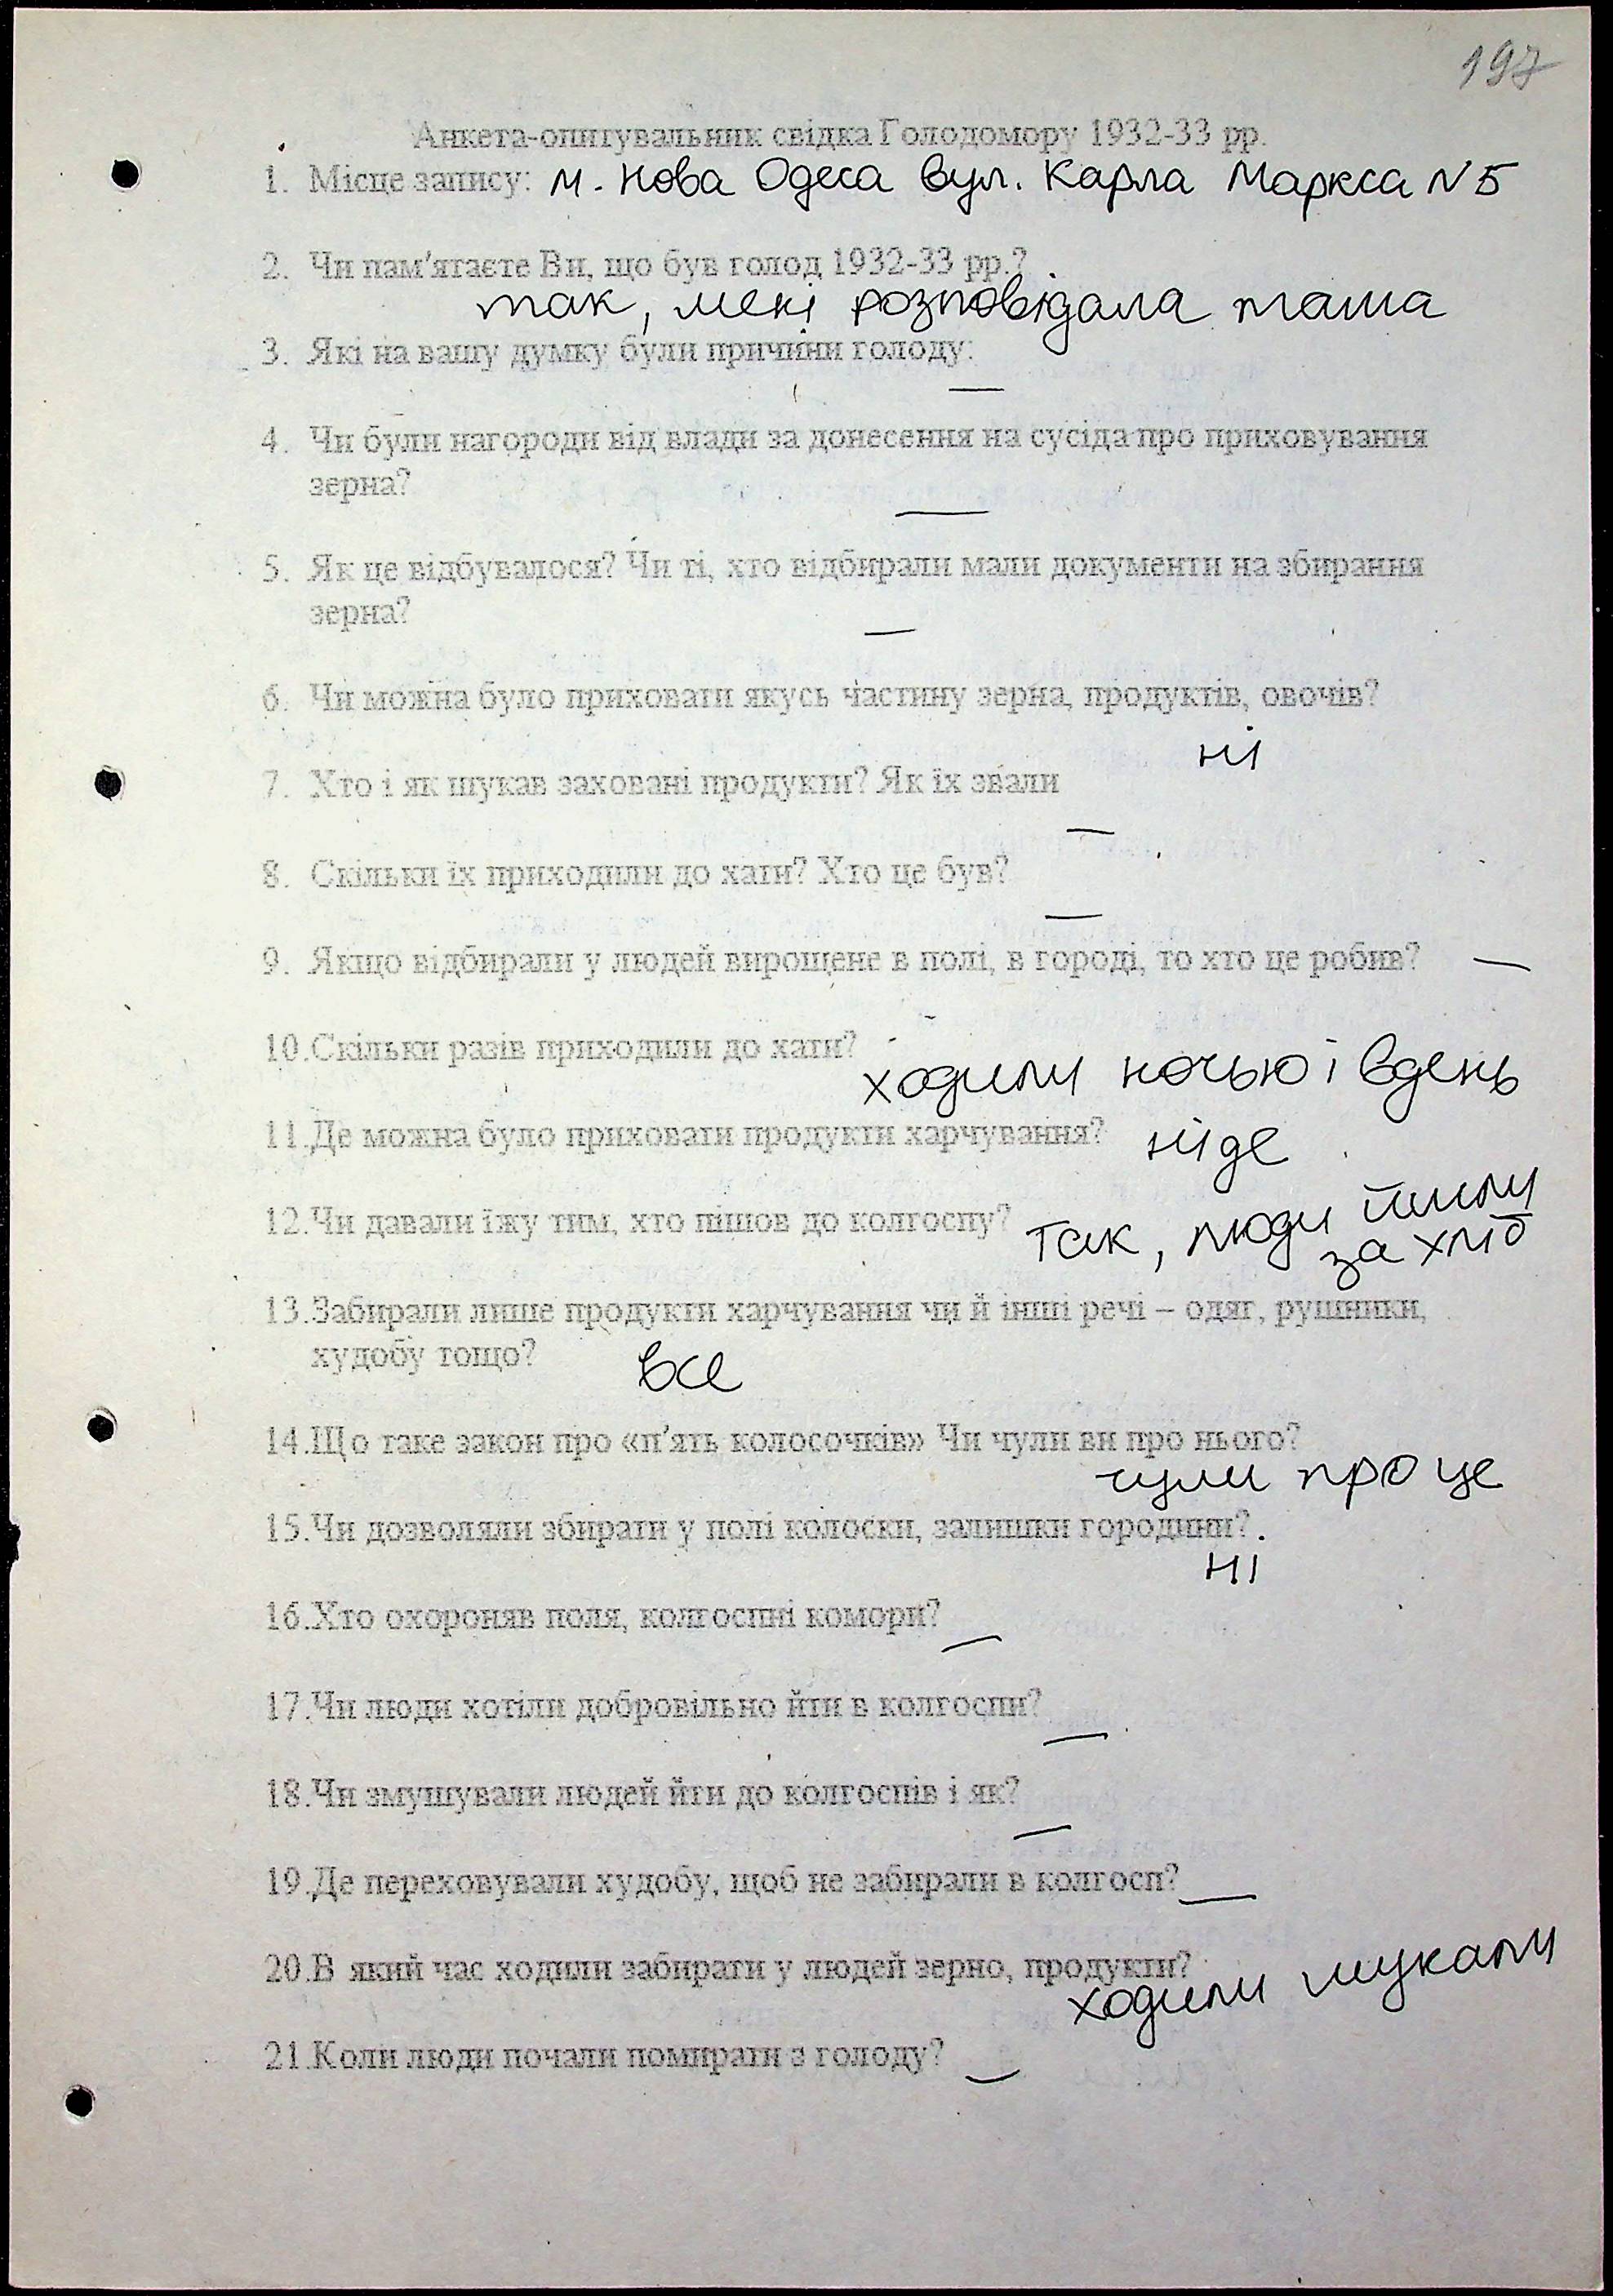 197
Анкета-опитувальник свідка Голодомору 1932-33 рр.
1. Місце запису: м. Нова Одеса вул. Карла Маркса N 5
2. Чи пам'ятаєте Ви, що був голод 1932-33 рр.?
так, мені розповідала мама
3. Які на вашу думку були причини голоду:
—
4. Чи були нагороди від влади за донесення на сусіда про приховування
зерна?
—
5. Як це відбувалося? Чи ті, хто відбирали мали документи на збирання
зерна?
—
6. Чи можна було приховати якусь частину зерна, продуктів, овочів?
ні
7. Хто і як шукав заховані продукти? Як їх звали
—
8. Скільки їх приходили до хати? Хто це був?
—
9. Якщо відбирали у людей вирощене в полі, в городі, то хто це робив? —
10.Скільки разів приходили до хати?
ходили ночью і вдень
11.Де можна було приховати продукти харчування? ніде
12.Чи давали їжу тим, хто пішов до колгоспу? Так, люди йшли
за хліб
13.Забирали лише продукти харчування чи й інші речі – одяг, рушники,
худобу тощо? все
14.Що таке закон про «п'ять колосочків» Чи чули ви про нього?
чули про це
15.Чи дозволяли збирати у полі колоски, залишки городини?
ні
16.Хто охороняв поля, колгоспні комори?
—
17.Чи люди хотіли добровільно йти в колгоспи?
—
18.Чи змушували людей йти до колгоспів і як?
—
19.Де переховували худобу, щоб не забирали в колгосп? —
20.В який час ходили забирати у людей зерно, продукти?
ходили шукали
21.Коли люди почали помирати з голоду? —